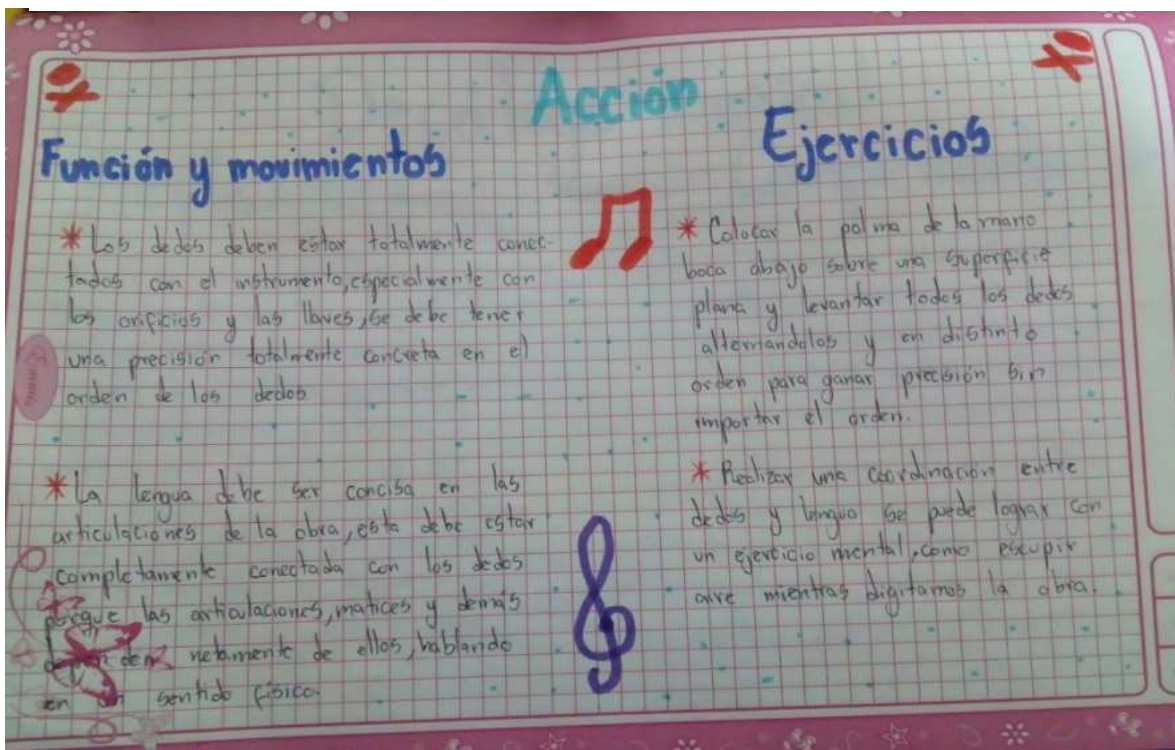 Acción
Función y movimientos
* Los dedos deben estar totalmente conec-
tados con el instrumento, especialmente con
los orificios y las llaves, se debe tener
una precisión totalmente concreta en el
orden de los dedos
* La lengua debe ser concisa en las
articulaciones de la obra, esta debe estar
completamente conectada con los dedos
porque las articulaciones, matices y demás
dependen netamente de ellos, hablando
en un sentido físico.
Ejercicios
* Colocar la palma de la mano
boca abajo sobre una superficie
plana y levantar todos los dedos
alternandolos y en distinto
orden para ganar precisión sin
importar el orden.
* Realizar una coordinación entre
dedos y lengua se puede lograr con
un ejercicio mental, como escupir
aire mientras digitamos la obra.